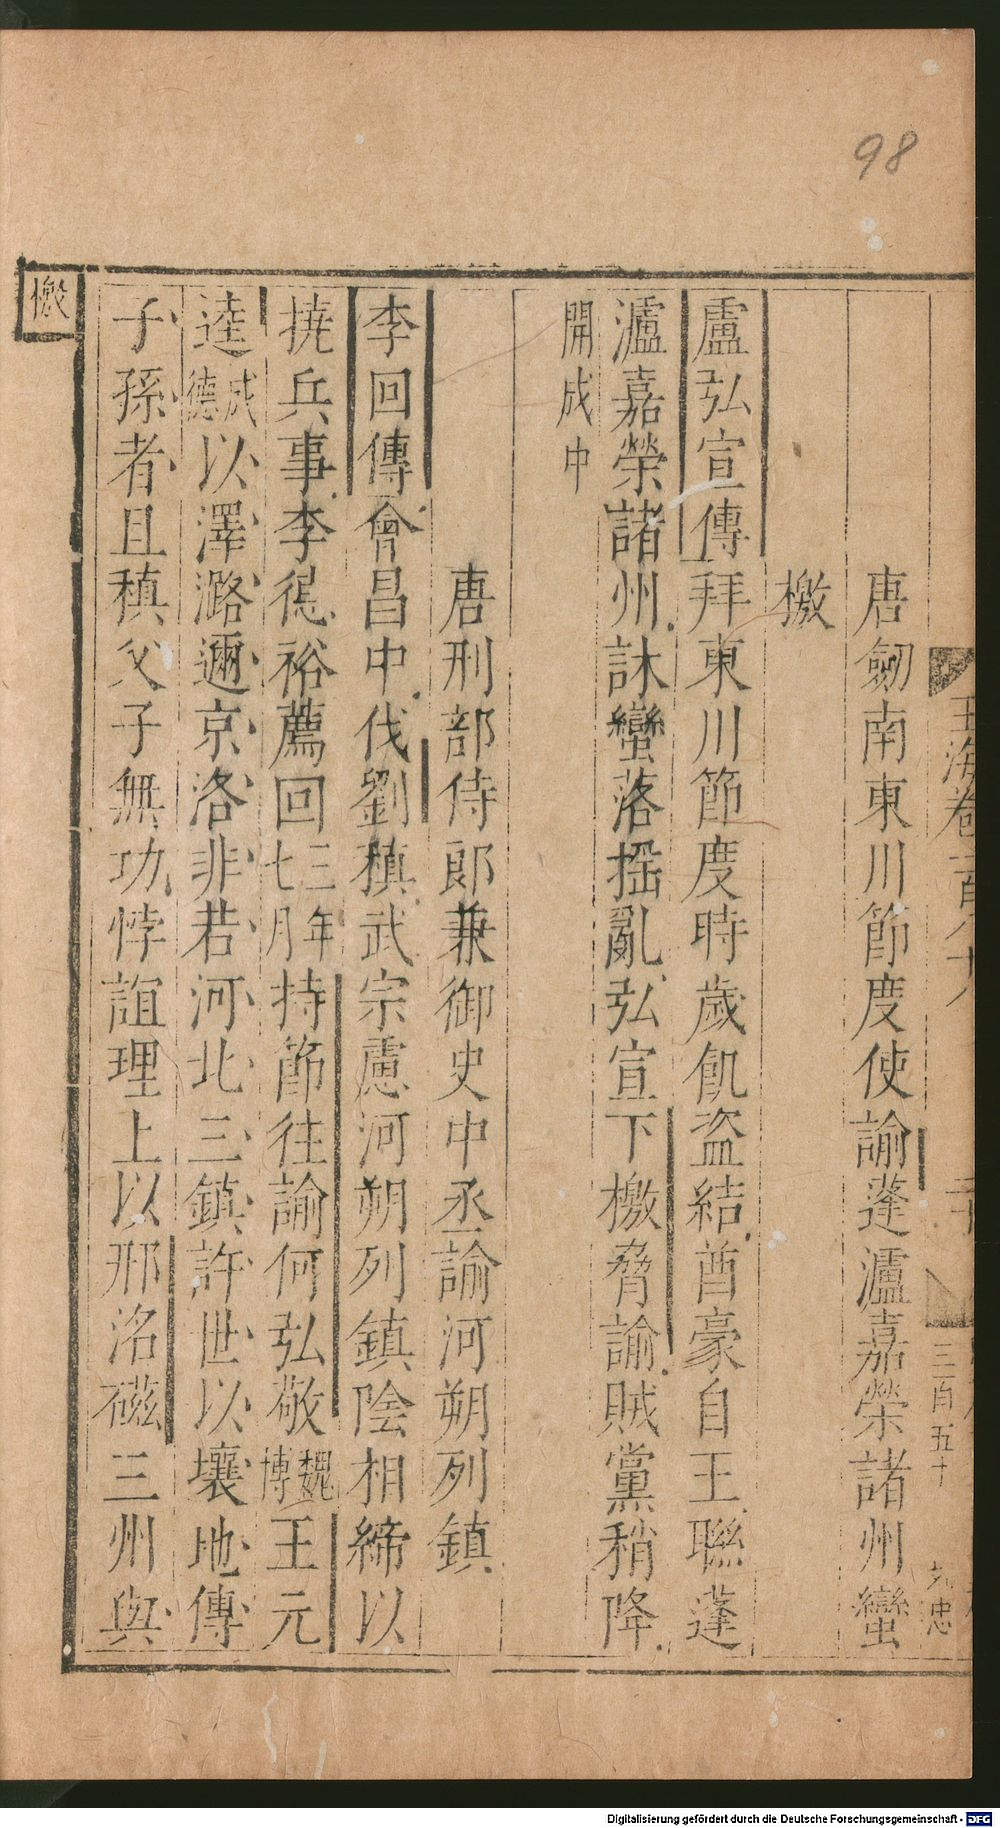 98
玉海卷一百八十八
三百五十
唐劒南東川節度使諭蓬瀘嘉榮諸州蠻
檄
盧弘宣傳拜東川節度時歲飢盗結酋豪自王聯蓬
瀘嘉榮諸州訹蠻落揺亂弘宣下檄脅諭賊黨稍降
開成中
唐刑部侍郎兼御史中丞諭河朔列鎮
李回傳會昌中伐劉稹武宗慮河朔列鎮陰相締以
撓兵事李德裕薦回三年七月持節往諭何弘敬魏博王元
逵成德以澤潞邇京洛非若河北三鎮許世以壤地傳
子孫者且稹父子無功悖誼理上以邢洺磁三州與
檄
Digitalisierung gefördert durch die Deutsche Forschungsgemeinschaft - DFG